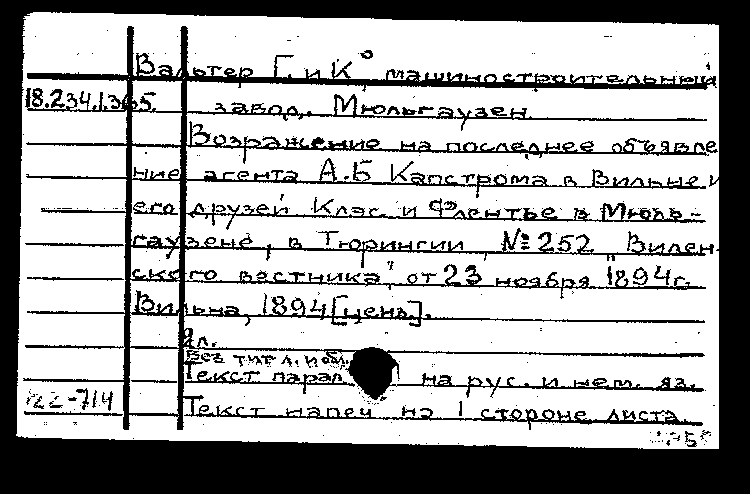 Вальтер Г. и К°, машиностроительный
18.234.1.365 завод. Мюльгаузен.
Возражение на последнее объявле
ние агента А.Б Капстрома в Вильне и
его друзей Клэс. и Флентье в Мюль-
гаузене, в Тюрингии, № 252 "Вилен-
ского вестника", от 23 ноября 1894г.
Вильна, 1894 [ценз.].
2л.
Без тит л. и обл.
Текст парал. на рус. и нем. яз.
Текст напеч на 1 стороне листа.